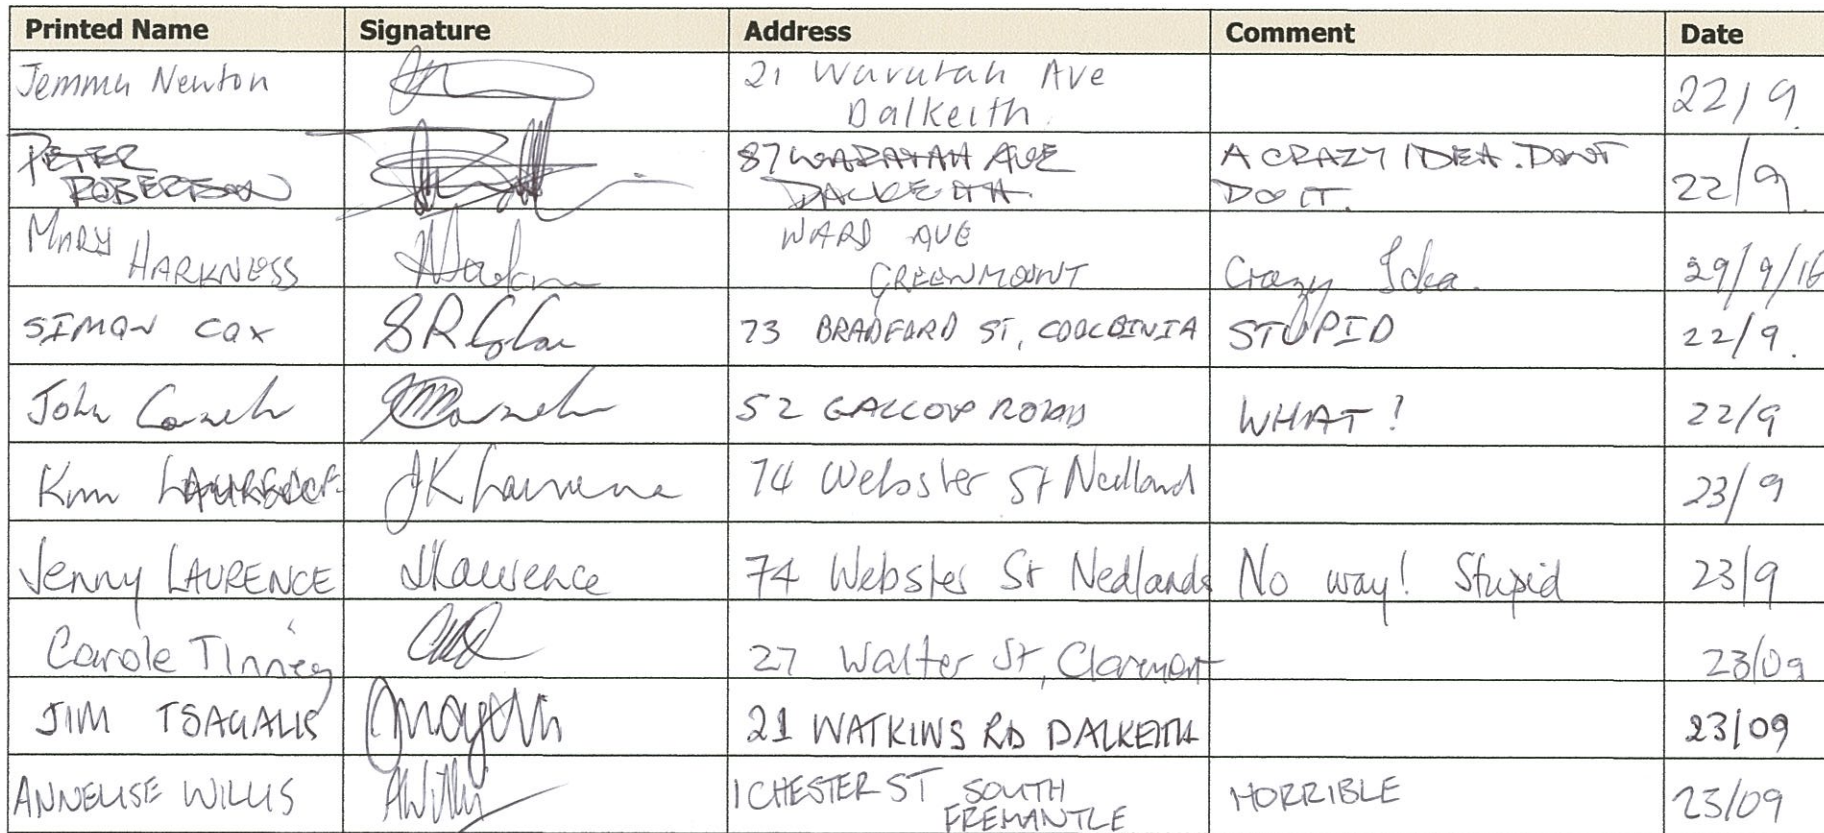 Printed Name Signature Address Comment Date
Jemma Newton 21 Waratah Ave 22/9
Dalkeith.
PETER 87 WARATAH AVE A CRAZY IDEA. DONT 22/9
ROBERTSON DALKEITH. DO IT.
MARY HARKNESS WARD AVE Crazy Idea. 29/9/16
GREENMOUNT
SIMON COX 73 BRADFORD ST, COOLBINIA STUPID 22/9.
John 52 GALLOP ROAD WHAT! 22/9
Kim LAURENCE JK Laurence 74 Webster St Nedland 23/9
Jenny LAURENCE JLaurence 74 Webster St Nedlands No way! Stupid 23/9
Carole Tinney 27 Walter St, Claremont 23/09
JIM TSAGALIS 21 WATKINS RD DALKEITH 23/09
ANNELISE WILLIS AWillis 1 CHESTER ST SOUTH HORRIBLE 23/09
FREMANTLE